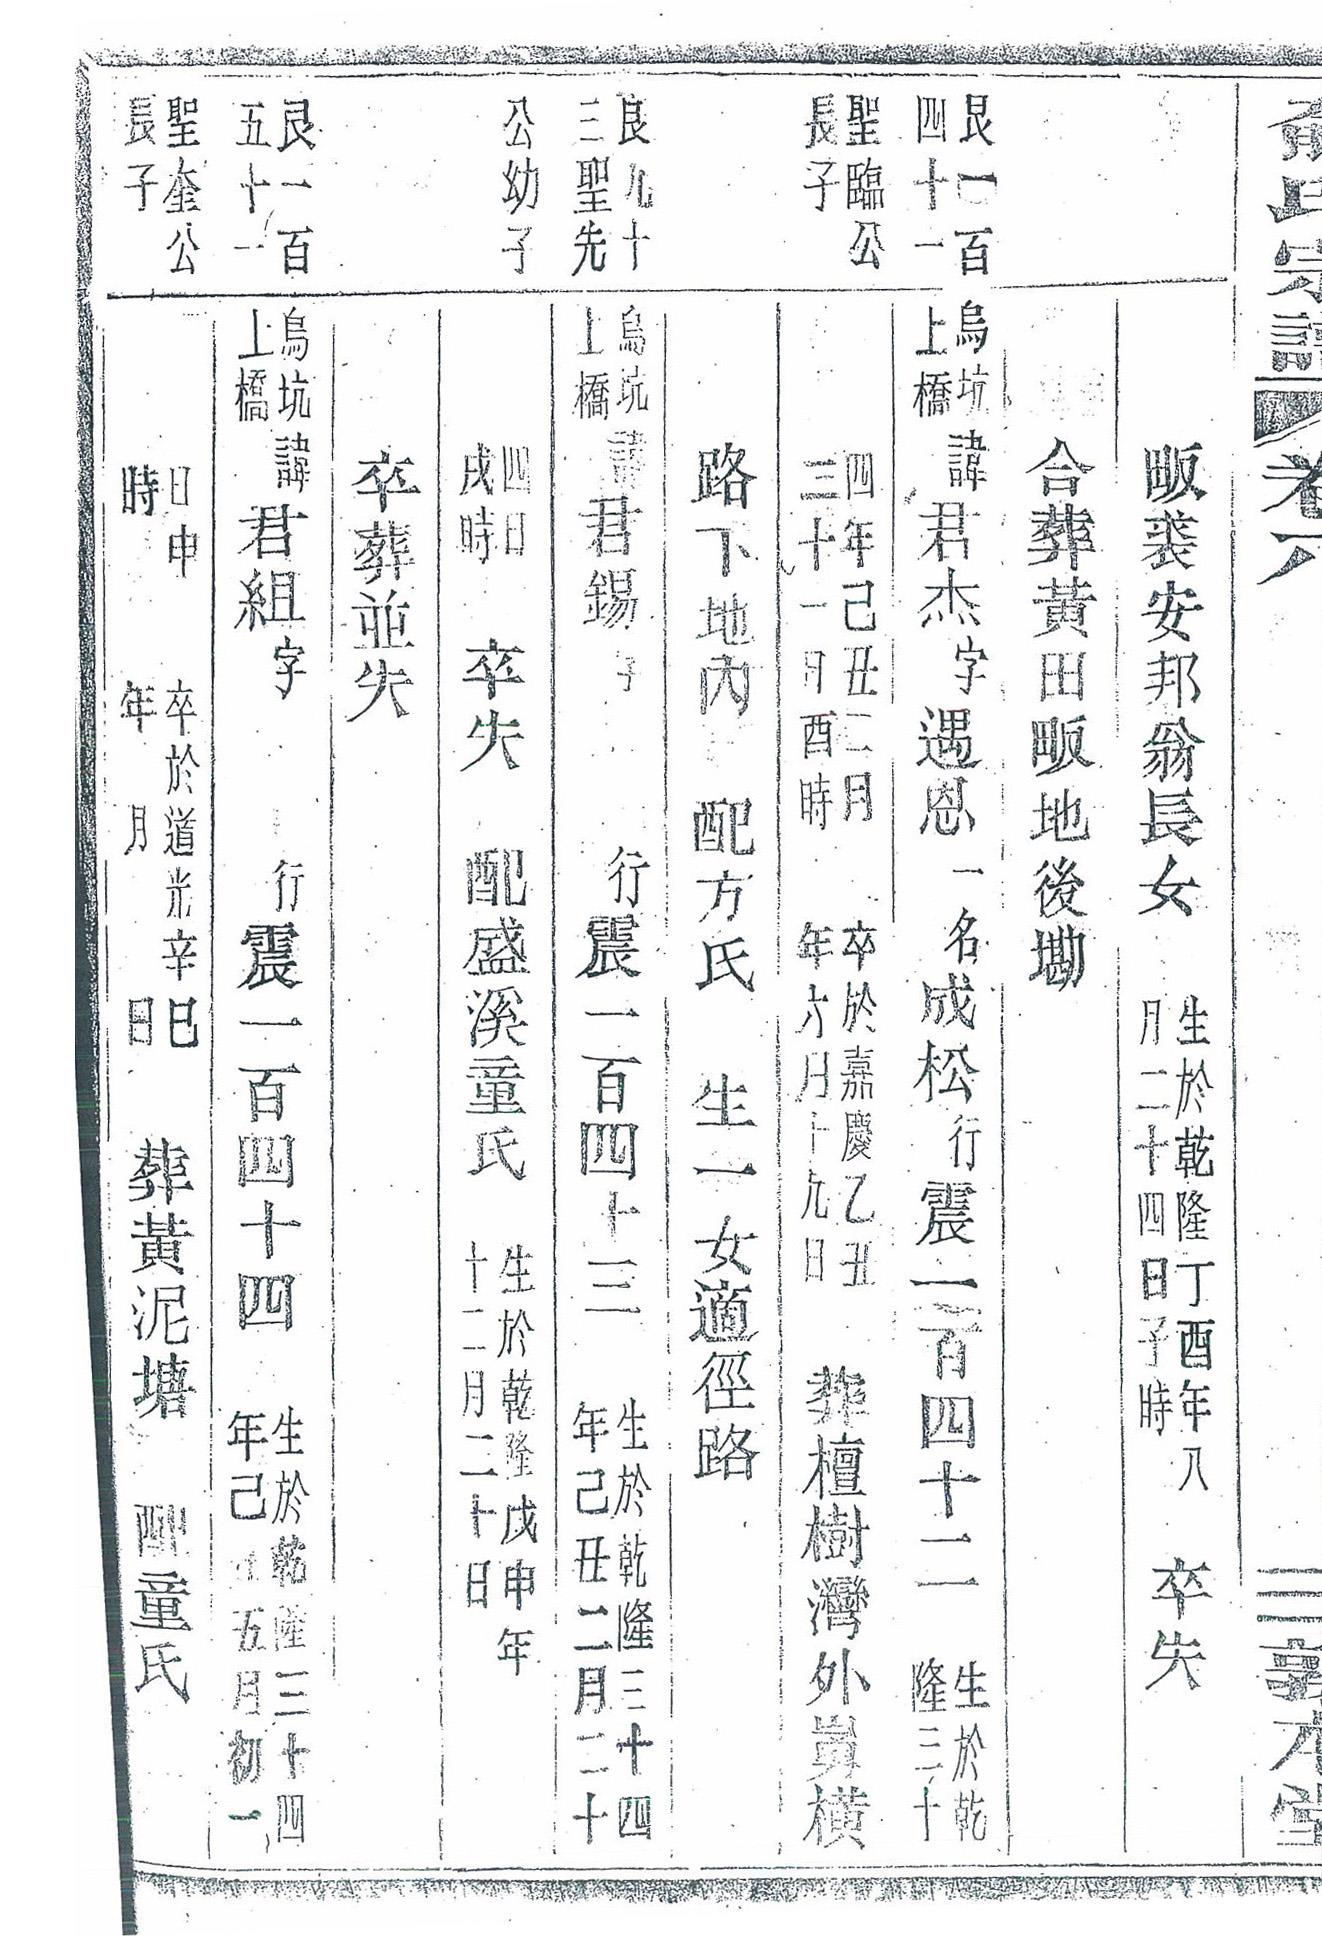 俞氏宗譜 卷六 三 敦本堂
畈裘安邦翁長女 生於乾隆丁酉年八月二十四日子時 卒失
合葬黃田畈地後墈
艮一百四十一
烏坑上橋 諱君杰字遇恩一名成松行震一百四十二 生於乾隆三十
聖臨公長子
四年己丑二月三十一日酉時 卒於嘉慶乙丑年六月十九日 葬檀樹灣外 橫
路下地內 配方氏 生一女適徑路
艮九十三聖先
烏坑上橋 諱君錫字 行震一百四十三 生於乾隆三十四年己丑二月二十
公幼子
四日戌時 卒失 配盛溪童氏 生於乾隆戊申年十二月二十日
卒葬並失
艮一百五十一
烏坑上橋 諱君組字 行震一百四十四 生於乾隆三十四年己丑五月初一
聖奎公長子
日申時 卒於道光辛巳年 月 日 葬黃泥塘 配童氏